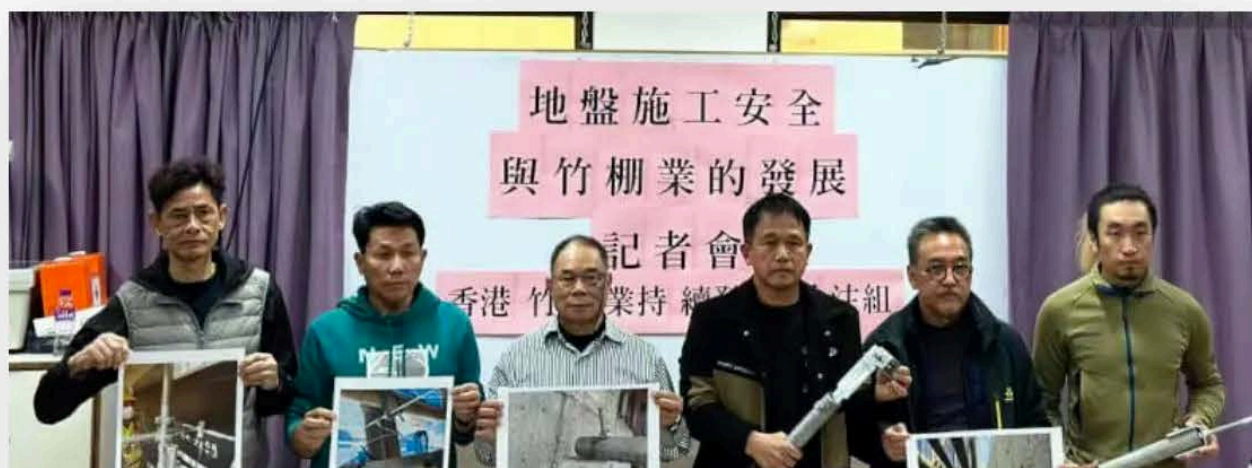 地盤施工安全
與竹棚業的發展
記者會
香港 竹 業持續 注組
NEW